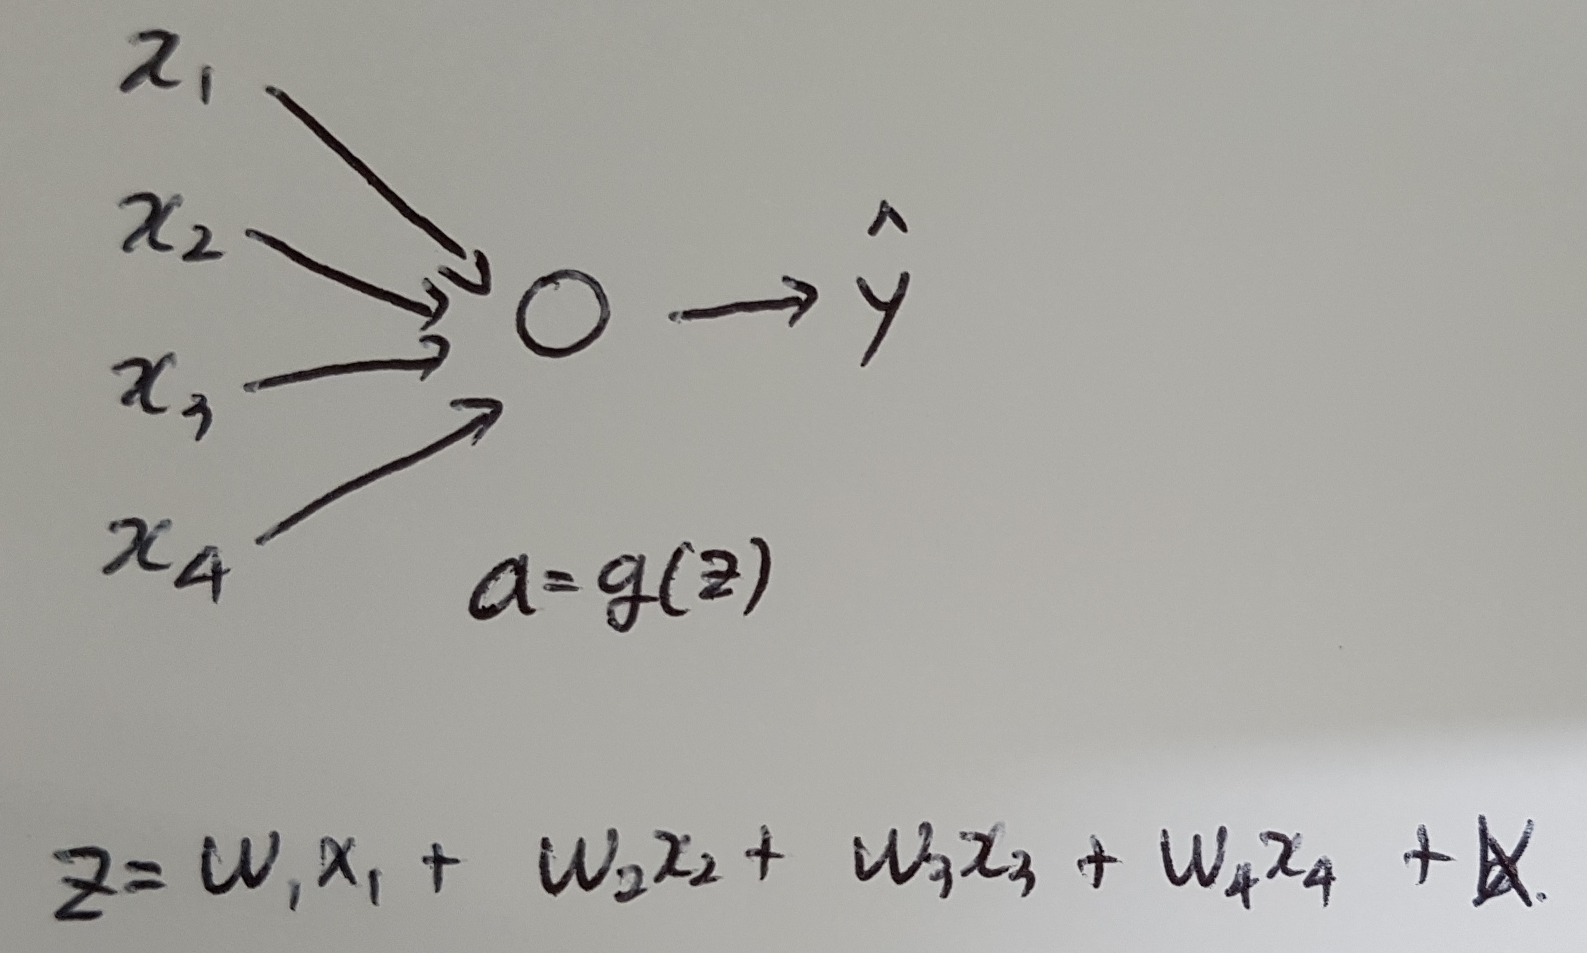 x₁
x₂
x₃
x₄
ŷ
a=g(z)
z= w₁x₁ + w₂x₂ + w₃x₃ + w₄x₄ +